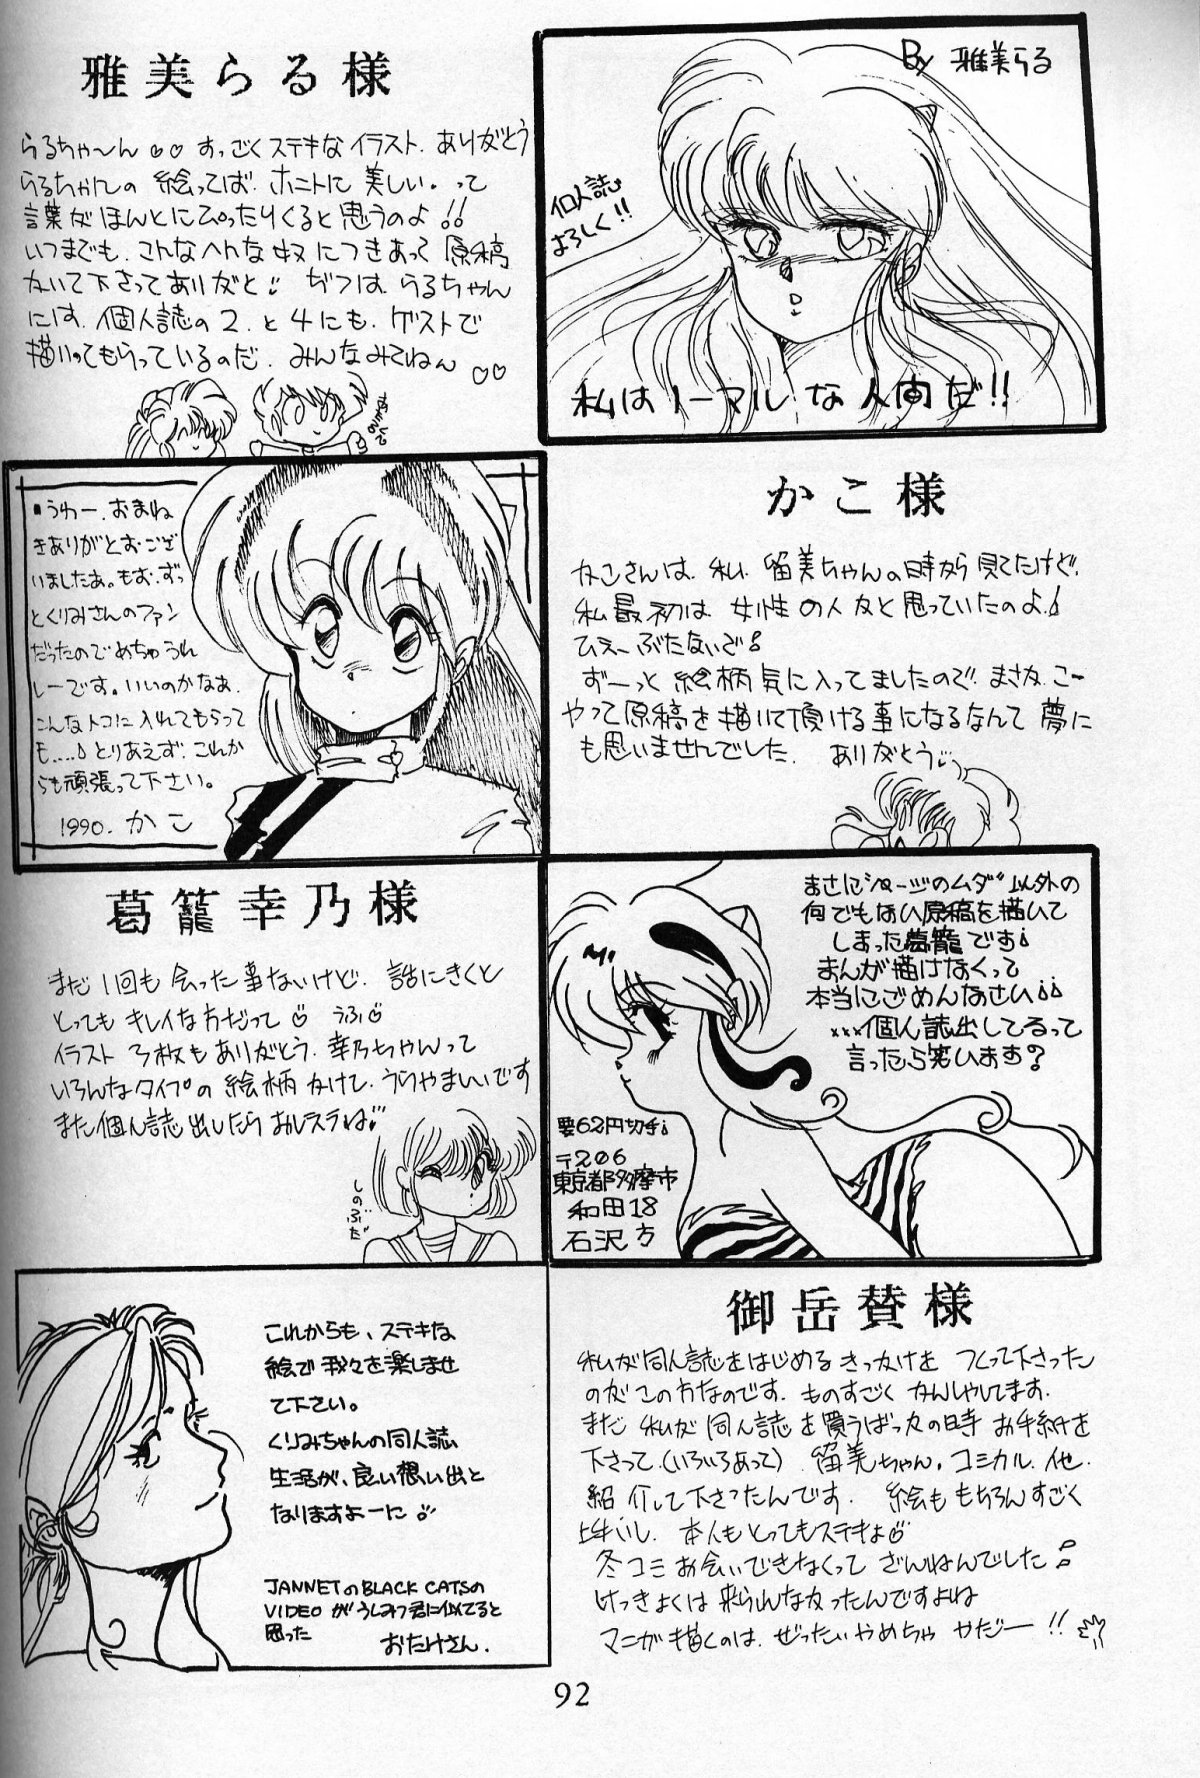 雅美らる様
らるちゃ〜ん♡♡すっごくステキなイラスト.ありがとう
らるちゃんの絵ってば.ホントに美しい。って
言葉がほんとにぴったりくると思うのよ!!
いつまでも.こんなへんな奴につきあって原稿
かいて下さってありがと♩ じつは.らるちゃん
には.個人誌の2.と4にも.ゲストで
描いてもらっているのだ.みんなみてねん♡♡
By 雅美らる
個人誌
よろしく!!
私はノーマルな人間だ!!
かこ様
かこさんは.私.留美ちゃんの時から見てたけど.
私最初は.女性の人かと思っていたのよ♩
ひえーぶたないで♩
ずーっと絵柄気に入ってましたので.まさか.こー
やって原稿を描いて頂ける事になるなんて夢に
も思いませんでした.ありがとう♩
・うわー.おまね
きありがとおござ
いましたあ。もお.ずっ
とくりみさんのファン
だったのでめちゃうれ
しーです。いいのかなあ.
こんなトコに入れてもらって
も....♩とりあえず.これか
らも頑張って下さい。
1990.かこ
葛籠幸乃様
まだ1回も会った事ないけど.話にきくと
とってもキレイな方だって♡ うふ♡
イラスト3枚もありがとう.幸乃ちゃんって
いろんなタイプの絵柄かけて.うらやましいです
また個人誌出したらおしえてね♡
しのぶだ
まさに“ページのムダ”以外の
何でもない原稿を描いて
しまった葛籠です♩
まんが描けなくって
本当にごめんなさい♩♩
×××個人誌出してるって
言ったら笑います?
要62円切手♩
〒206
東京都多摩市
和田18
石沢方
御岳賛様
私が同人誌をはじめるきっかけをつくって下さった
のがこの方なのです.ものすごくかんしゃしてます.
まだ私が同人誌を買うばっかの時お手紙を
下さって.(いろいろあって)留美ちゃん.コミカル.他.
紹介して下さったんです.絵ももちろんすごく
上手いし.本人もとってもステキよ♡
冬コミお会いできなくってざんねんでした♩
けっきょくは来られんなかったんですよね
マンガ描くのは.ぜったいやめちゃやだー!!
これからも、ステキな
絵で我々を楽しませ
て下さい。
くりみちゃんの同人誌
生活が、良い想い出と
なりますよーに♩
JANNETのBLACK CATSの
VIDEOがうしみつ君に似てると
思った
おたけさん.
92